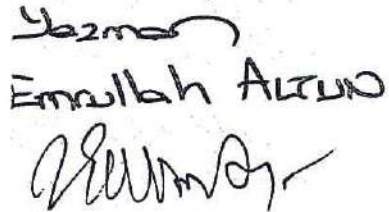 Yazman
Emrullah ALTUN